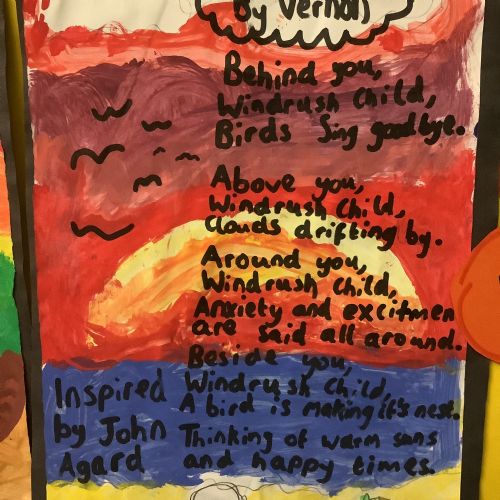 By Vernon
Behind you,
Windrush Child,
Birds Sing goodbye.
Above you,
Windrush Child,
Clouds drifting by.
Around you,
Windrush Child,
Anxiety and excitmen
are said all around.
Beside you,
Windrush Child,
A bird is making it's nest.
Thinking of warm suns
and happy times.
Inspired
by John
Agard